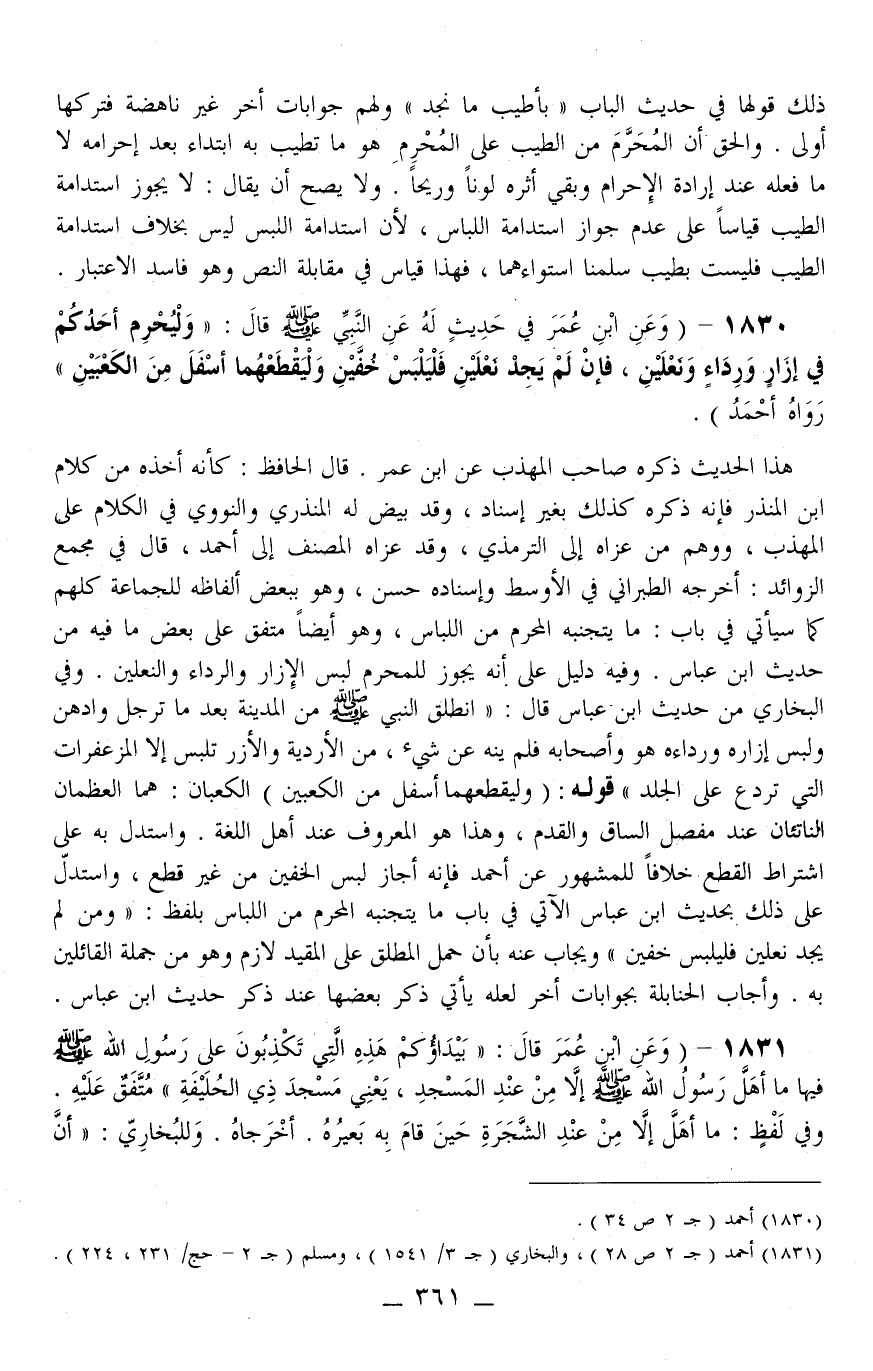 ذلك قولها في حديث الباب « بأطيب ما نجد » ولهم جوابات أخر غير ناهضة فتركها
أولى . والحق أن المُحَرَّمَ من الطيب على المُحْرِمِ هو ما تطيب به ابتداء بعد إحرامه لا
ما فعله عند إرادة الإحرام وبقي أثره لوناً وريحاً . ولا يصح أن يقال : لا يجوز استدامة
الطيب قياساً على عدم جواز استدامة اللباس ، لأن استدامة اللبس ليس بخلاف استدامة
الطيب فليست بطيب سلمنا استواءهما ، فهذا قياس في مقابلة النص وهو فاسد الاعتبار .
١٨٣٠ – ( وَعَنِ ابْنِ عُمَرَ في حَدِيثٍ لَهُ عَنِ النَّبِيِّ ﷺ قالَ : « وَلْيُحْرِم أحَدُكُمْ
في إزَارٍ وَرِدَاءٍ وَنَعْلَيْنِ ، فإنْ لَمْ يَجِدْ نَعْلَيْنِ فَلْيَلْبَسْ خُفَّيْنِ وَلْيَقْطَعْهُما أسْفَلَ مِنَ الكَعْبَيْنِ »
رَوَاهُ أحْمَدُ ) .
هذا الحديث ذكره صاحب المهذب عن ابن عمر . قال الحافظ : كأنه أخذه من كلام
ابن المنذر فإنه ذكره كذلك بغير إسناد ، وقد بيض له المنذري والنووي في الكلام على
المهذب ، ووهم من عزاه إلى الترمذي ، وقد عزاه المصنف إلى أحمد ، قال في مجمع
الزوائد : أخرجه الطبراني في الأوسط وإسناده حسن ، وهو ببعض ألفاظه للجماعة كلهم
كما سيأتي في باب : ما يتجنبه المحرم من اللباس ، وهو أيضاً متفق على بعض ما فيه من
حديث ابن عباس . وفيه دليل على أنه يجوز للمحرم لبس الإزار والرداء والنعلين . وفي
البخاري من حديث ابن عباس قال : « انطلق النبي ﷺ من المدينة بعد ما ترجل وادهن
ولبس إزاره ورداءه هو وأصحابه فلم ينه عن شيء ، من الأردية والأزر تلبس إلا المزعفرات
التي تردع على الجلد » قوله : ( وليقطعهما أسفل من الكعبين ) الكعبان : هما العظمان
الناتئان عند مفصل الساق والقدم ، وهذا هو المعروف عند أهل اللغة . واستدل به على
اشتراط القطع خلافاً للمشهور عن أحمد فإنه أجاز لبس الخفين من غير قطع ، واستدلّ
على ذلك بحديث ابن عباس الآتي في باب ما يتجنبه المحرم من اللباس بلفظ : « ومن لم
يجد نعلين فليلبس خفين » ويجاب عنه بأن حمل المطلق على المقيد لازم وهو من جملة القائلين
به . وأجاب الحنابلة بجوابات أخر لعله يأتي ذكر بعضها عند ذكر حديث ابن عباس .
١٨٣١ – ( وَعَنِ ابْنِ عُمَرَ قالَ : « بَيْدَاؤُكمْ هَذِهِ الَّتِي تَكْذِبُونَ على رَسُولِ الله ﷺ
فيها ما أهَلَّ رَسُولُ الله ﷺ إلَّا مِنْ عنْدِ المَسْجدِ ، يَعْنِي مَسْجدَ ذِي الحُلَيْفَةِ » مُتَّفَقٌ عَلَيْهِ .
وفي لَفْظٍ : ما أهَلَّ إلَّا مِنْ عنْدِ الشَّجَرَةِ حَينَ قامَ بِه بَعيرُهُ . أخْرَجاهُ . وَللبُخارِيّ : « أنَّ
(١٨٣٠) أحمد ( جـ ٢ ص ٣٤ ) .
(١٨٣١) أحمد ( جـ ٢ ص ٢٨ ) ، والبخاري ( جـ ٣/ ١٥٤١ ) ، ومسلم ( جـ ٢ – حج/ ٢٣١ ، ٢٢٤ ) .
— ٣٦١ —